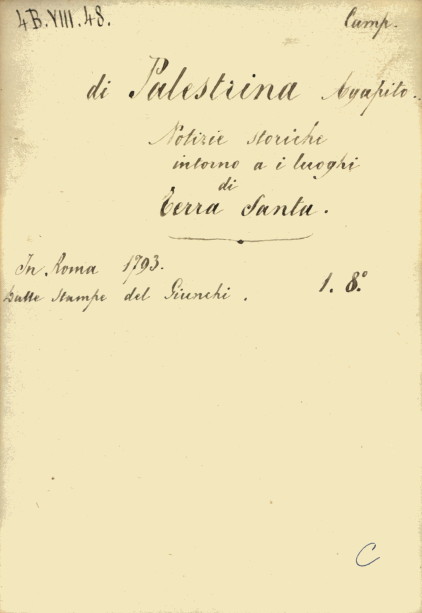 4B.VIII.48.
Camp.
di Palestrina Agapito.
Notizie storiche
intorno a i luoghi
di
Terra Santa.
In Roma 1793.
Dalle Stampe del Giunchi.
1. 8.º
C